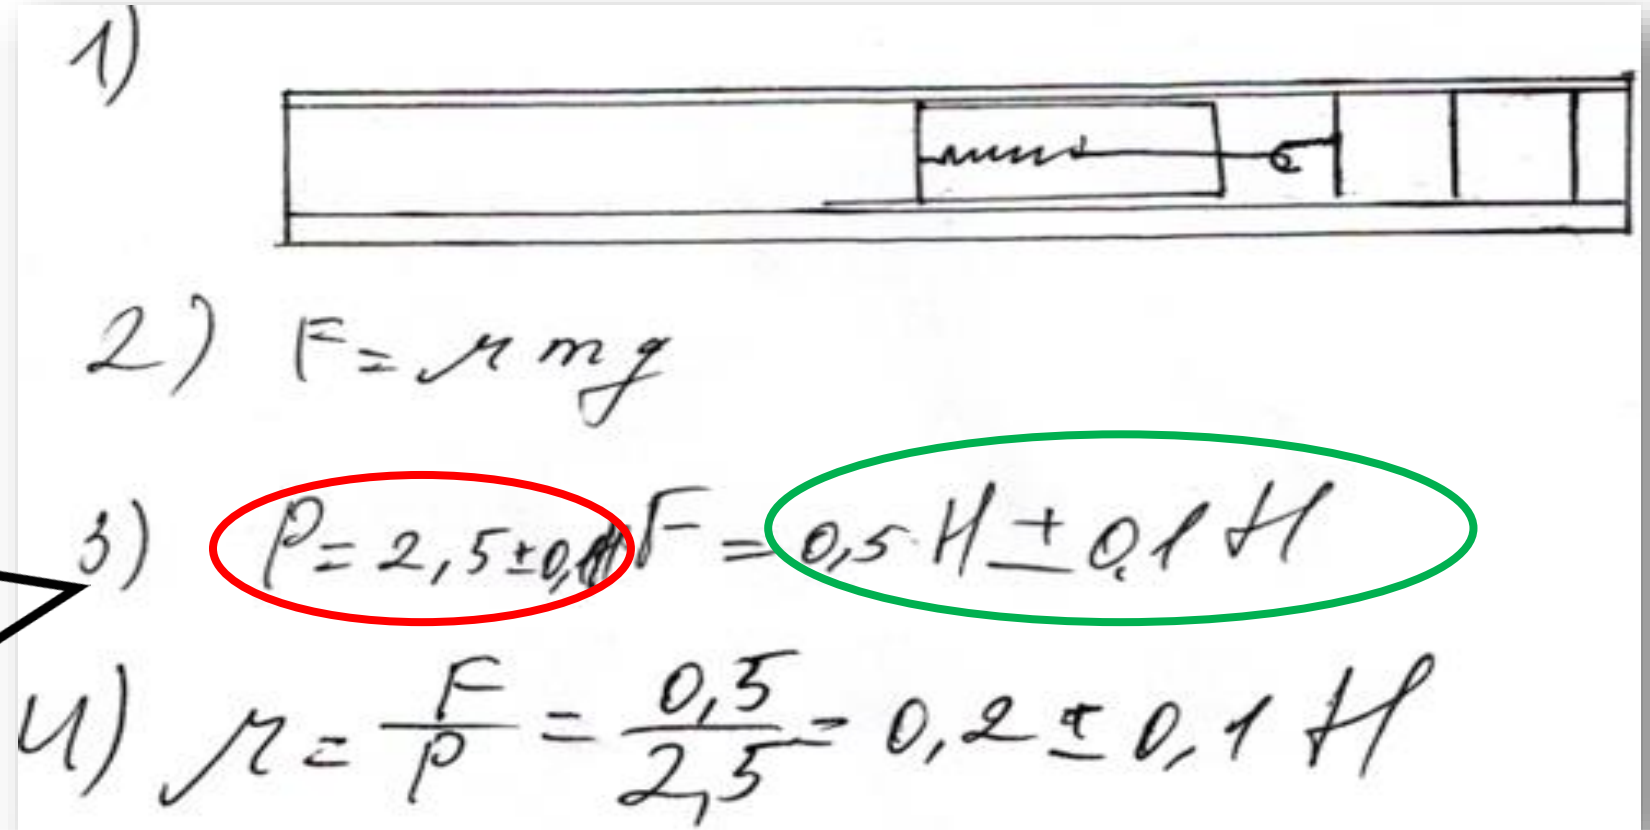 1)
2) F = μ mg
3) P = 2,5 ± 0,1Н F = 0,5 Н ± 0,1 Н
4) μ = F/P = 0,5/2,5 = 0,2 ± 0,1 Н